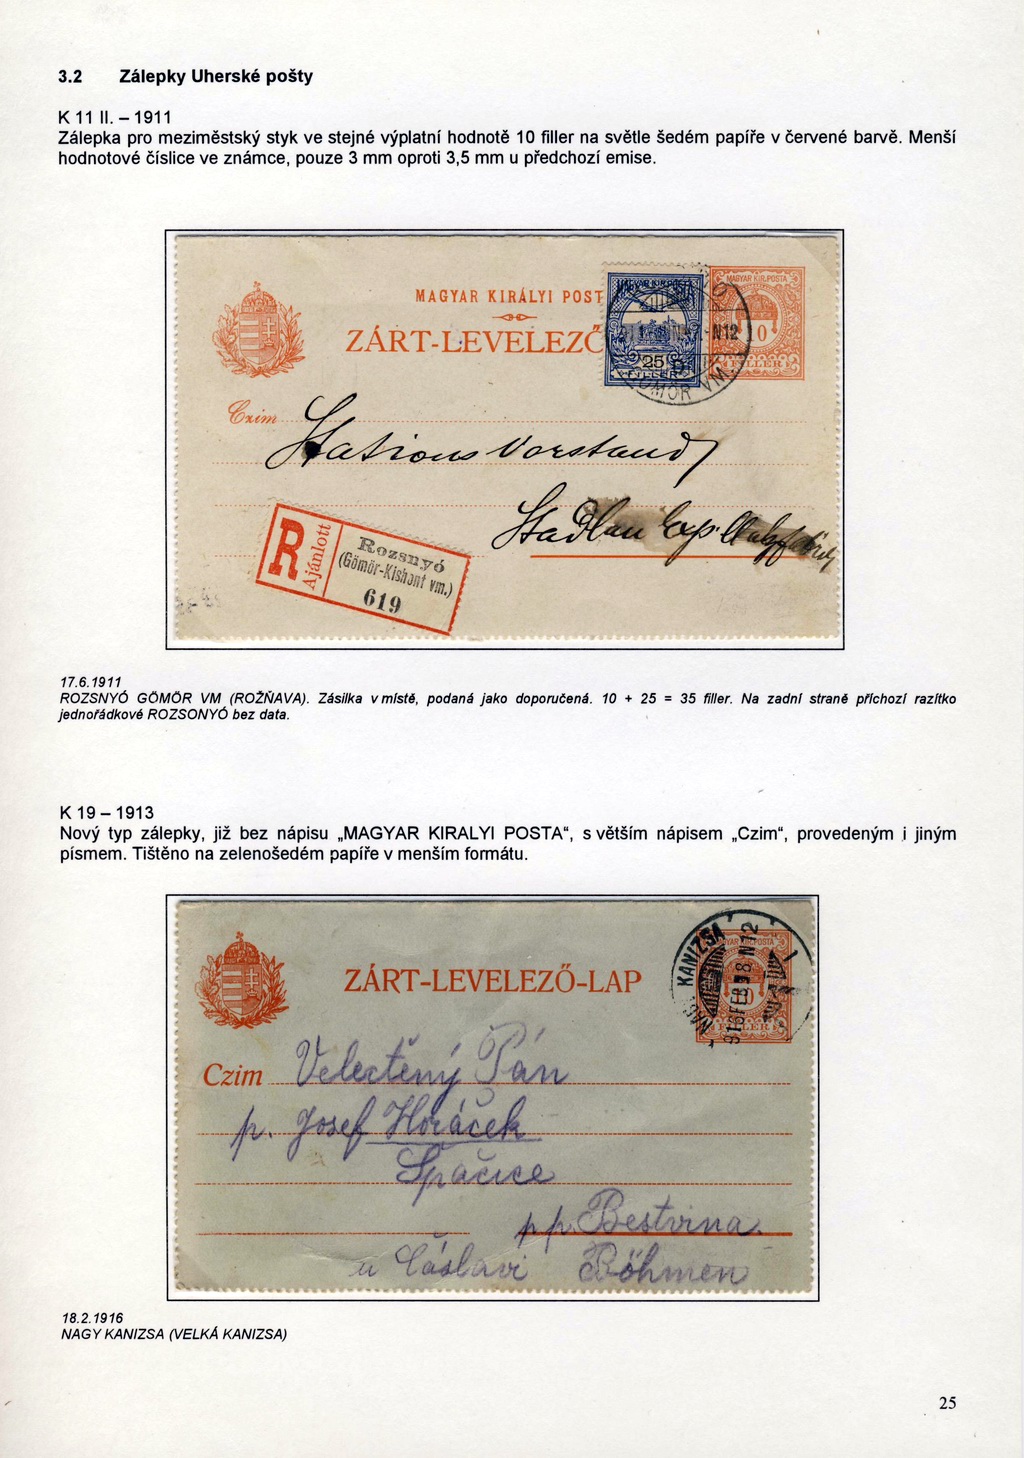 3.2 Zálepky Uherské pošty
K 11 II. – 1911
Zálepka pro meziměstský styk ve stejné výplatní hodnotě 10 filler na světle šedém papíře v červené barvě. Menší
hodnotové číslice ve známce, pouze 3 mm oproti 3,5 mm u předchozí emise.
MAGYAR KIRÁLYI POST
MAGYAR KIR. POSTA
ZÁRT-LEVELEZŐ
N12
25
FILLER
10
FILLER
GÖMÖR VM.
Czim
Stations Vorstand
Stadlau
R
Ajánlott
Rozsnyó
(Gömör-Kishont vm.)
619
17.6.1911
ROZSNYÓ GÖMÖR VM (ROŽŇAVA). Zásilka v místě, podaná jako doporučená. 10 + 25 = 35 filler. Na zadní straně příchozí razítko
jednořádkové ROZSONYÓ bez data.
K 19 – 1913
Nový typ zálepky, již bez nápisu „MAGYAR KIRALYI POSTA“, s větším nápisem „Czim“, provedeným i jiným
písmem. Tištěno na zelenošedém papíře v menším formátu.
NAGY KANIZSA
916 FEB 18 N12
ZÁRT-LEVELEZŐ-LAP
10
FILLER
Czim Velectěný Pán
p. Josef Horáček
Spačice
pp. Bestvina.
u Čáslavi Böhmen
18.2.1916
NAGY KANIZSA (VELKÁ KANIZSA)
25